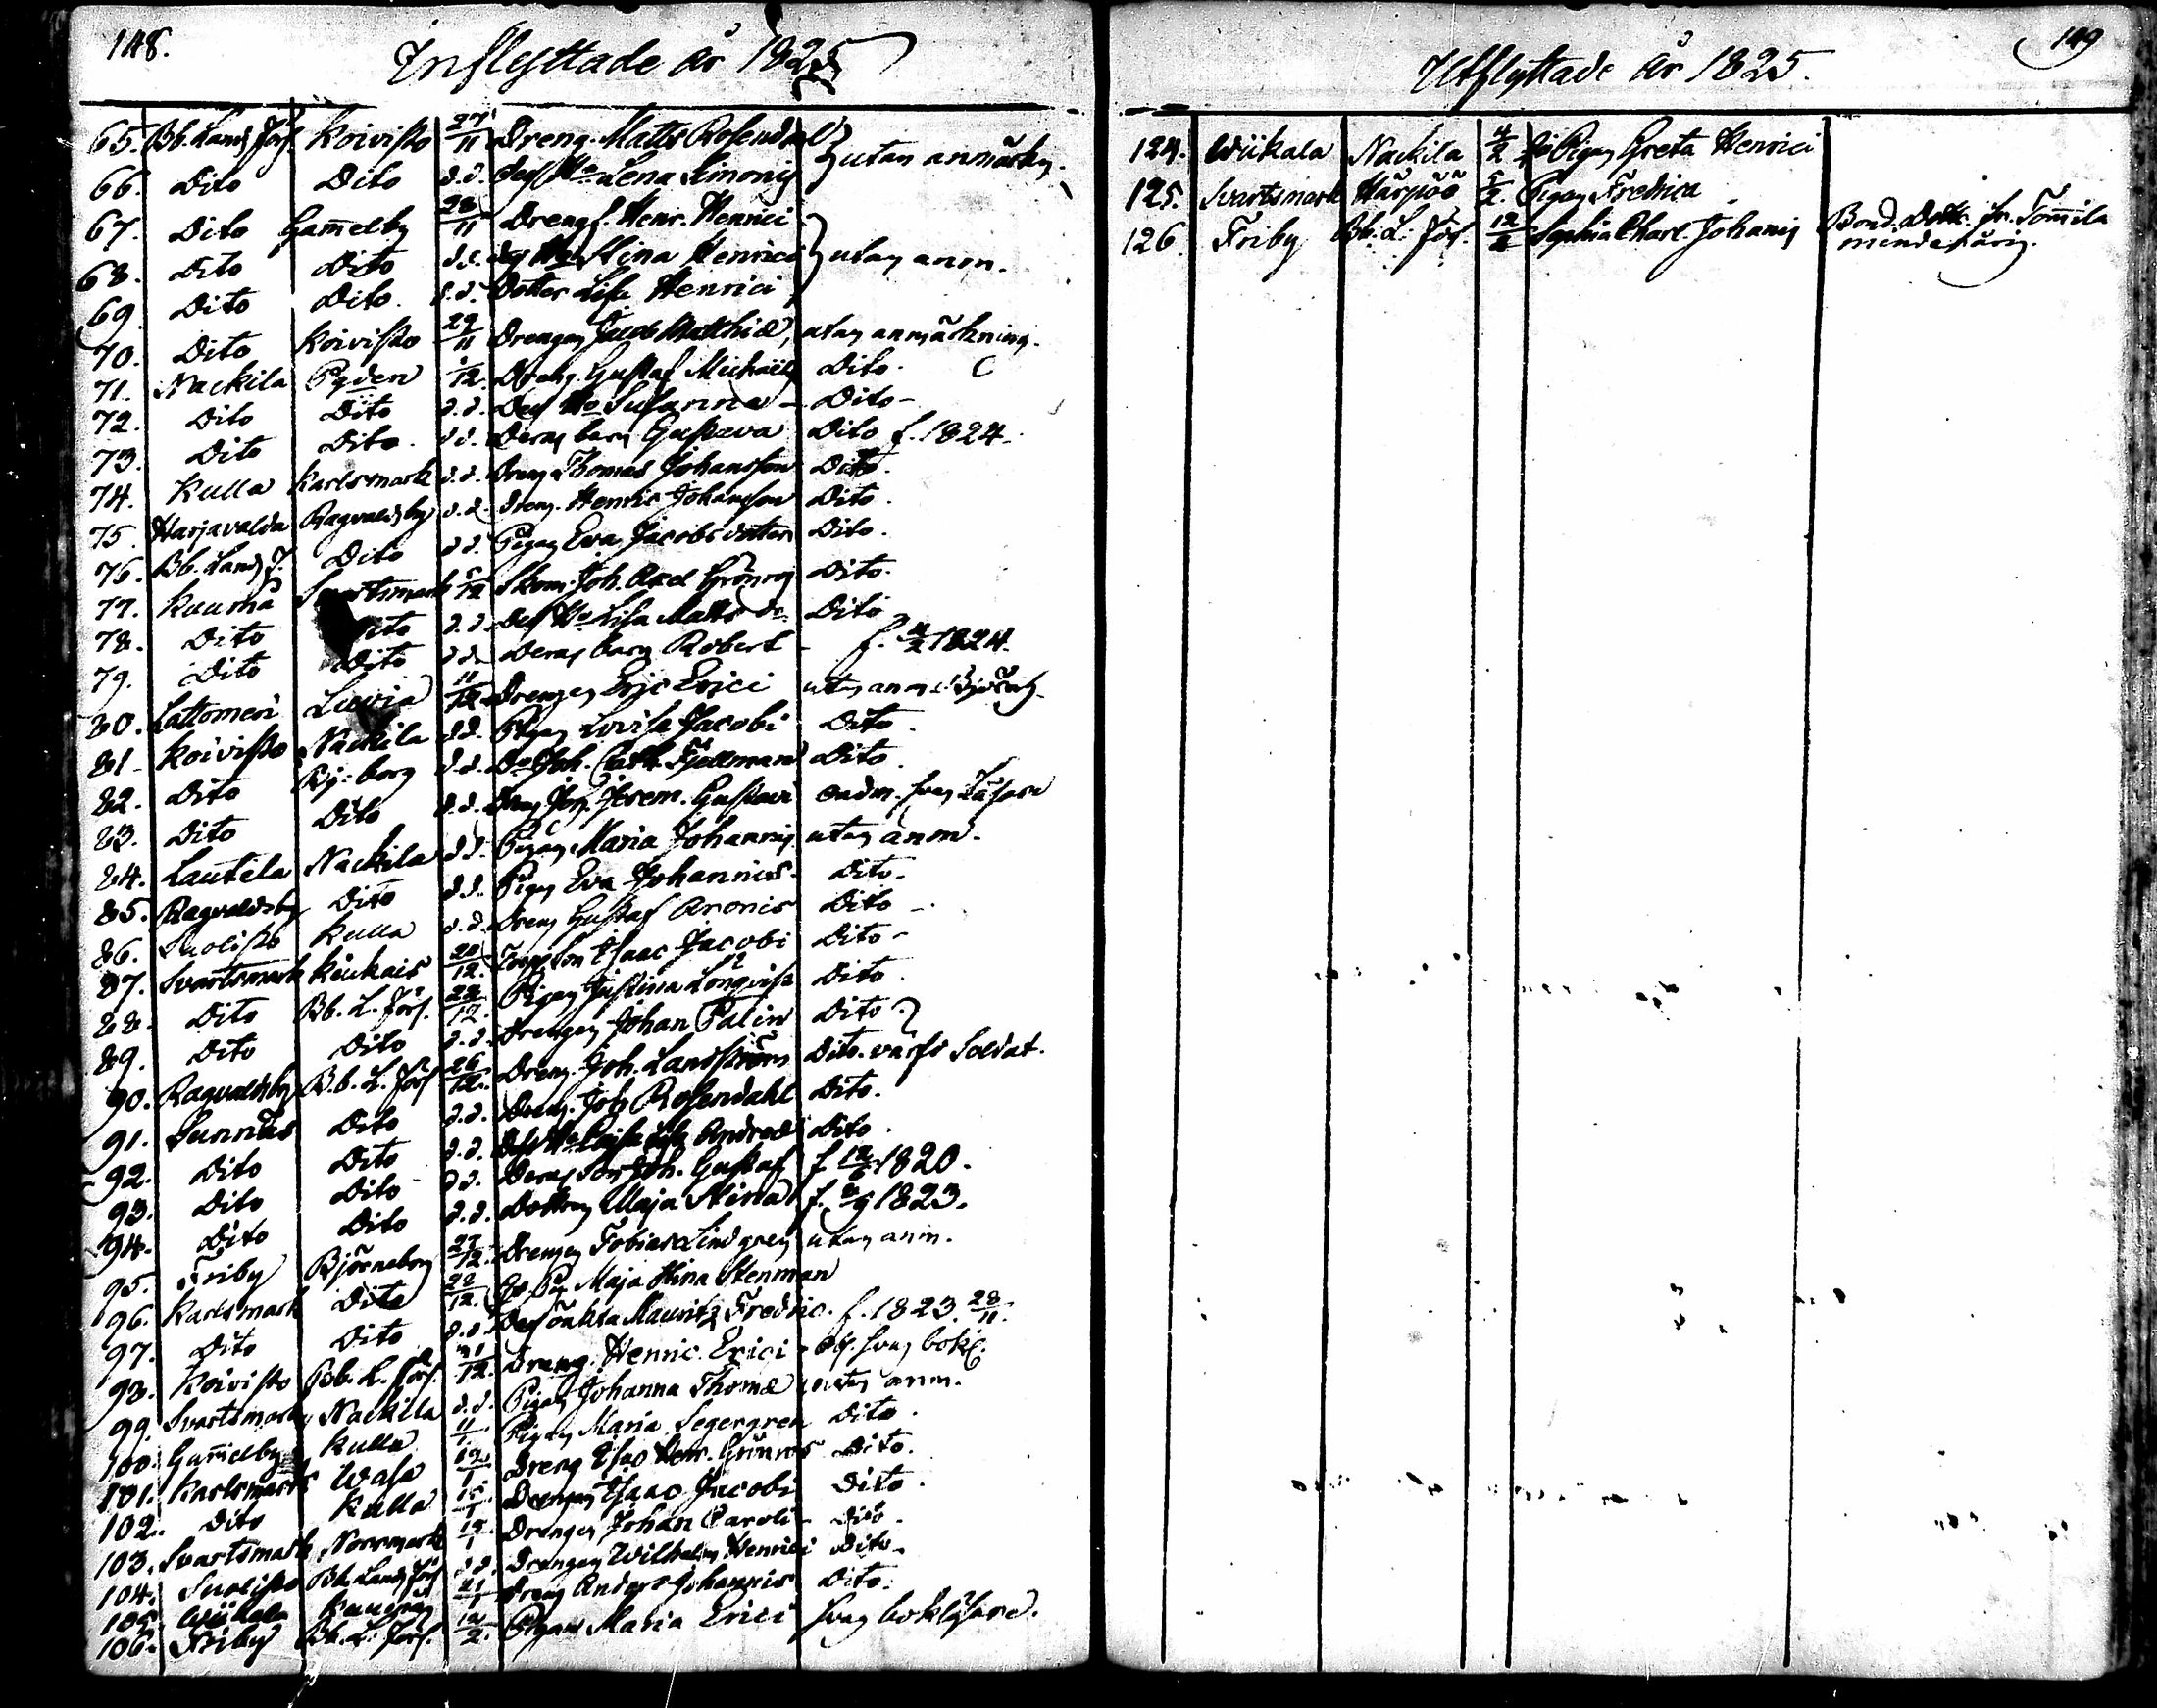 148.
Inflyttade år 1825
65. Bb. Lands förs. Koivisto 27/11 Dreng. Matts Rosendal
66. Dito Dito d.d. des Ho Lena Simonis } utan anmärkn.
67. Dito Gam̄elby 28/11 Drengf. Henr. Henrici
68. Dito Dito d.d. des Ho Stina Henrici } utan anm.
69. Dito Dito d.d. Dotter Lisa Henrici
70. Dito Koivisto 29/11 Drengen Jacob Matthiæ, utan anmärkning.
71. Nackila /12. Dreng. Gustaf Michaëlis Dito.
72. Dito Dito d.d. Des Ho Susanna - Dito -
73. Dito Dito. d.d. Deras barn Gustava Dito f. 1824.
74. Kulla Karlsmark d.d. Dreng Thomas Johansson Dito.
75. Harjavalda Ragvaldsby d.d. Dreng. Henric Johansson Dito.
76. Bb. Lands f. Dito d.d. Pigan Eva Jacobsdotter Dito.
77. Kuumä Svartsmark 5/12 Skom. Joh. Axel Grönros Dito.
78. Dito Dito d.d. Des Ho Lisa Matts dr Dito
79. Dito Dito d.d. Deras barn Robert - f. 4/2 1824.
80. Lattomeri Luvia 11/12 Drengen Eric Erici utan anm.
81. Koivisto Nackila d.d. Pigan Lovisa Jacobi Dito.
82. Dito Bj:borg d.d. Do Joh. Cath. Fjellman Dito.
83. Dito Dito d.d. Dreng Joh. Jerem. Gustavi svag Läsare
84. Lautela Nackila d.d. Pigan Maria Johannis utan anm.
85. Ragvaldsby Dito d.d. Pigan Eva Johannis. Dito.
86. Suolisto Kulla d.d. Dreng Gustaf Aronis Dito -
87. Svartsmark Kiukais 20/12. Son Isaac Jacobi Dito -
88. Dito Bb. L. förs. 24/12. Pigan Justina Lönqvist Dito.
89. Dito Dito d.d. Drengen Johan Palin Dito.
90. Ragvaldsby B.b. L. förs 26/12. Dreng. Joh. Landström Dito. värfd Soldat.
91. Sunnäs Dito d.d. Dreng. Joh Rosendahl Dito.
92. Dito Dito d.d. Des Ho Lisa Andreæ Dito.
93. Dito Dito d.d. Deras Son Joh. Gustaf f 12/6 1820.
94. Dito Dito d.d. Dottren Maja Stina f. 2/9 1823.
95. Friby Björneborg 27/12. Drengen Tobias Lindgren utan anm.
96. Karlsmark Dito 28/12. Maja Stina Stenman
97. Dito Dito d.d. Des oäkta Mauritz Fredric. f. 1823. 28/11.
98. Koivisto Bb. L. förs. 31/12. Dreng. Henric. Erici - svag bokl.
99. Svartsmark Nackila d.d. Pigan Johanna Thomæ utan anm.
100. Gam̄elby Kulla 11/1 Pigan Maria Segergren Dito.
101. Karlsmark Wasa 13/1 Dreng Isac Henr. Grönros Dito.
102. Dito Kulla 15/1 Drengen Isaac Jacobi Dito.
103. Svartsmark Norrmark 19/1 Drengen Johan Caroli - Dito.
104. Suolisto Bb. Lands förs d.d. Drengen Wilhelm Henrici Dito.
105. Wiikala Kuumä 21/1 Dreng Anders Johannis Dito.
106. Friby Bb. L. förs. 12/2. Pigan Maria Erici svag bokläsare.
149
Utflyttade år 1825.
124. Wiikala Nackila 4/2 Pigan Greta Henrici
125. Svartsmark Härpöö 5/2. Pigan Fredrica
126. Friby Bb. L. förs. 12/2 Sophia Charl. Johanis Bond. Dott. fr. Tom̄ila
minderårig.